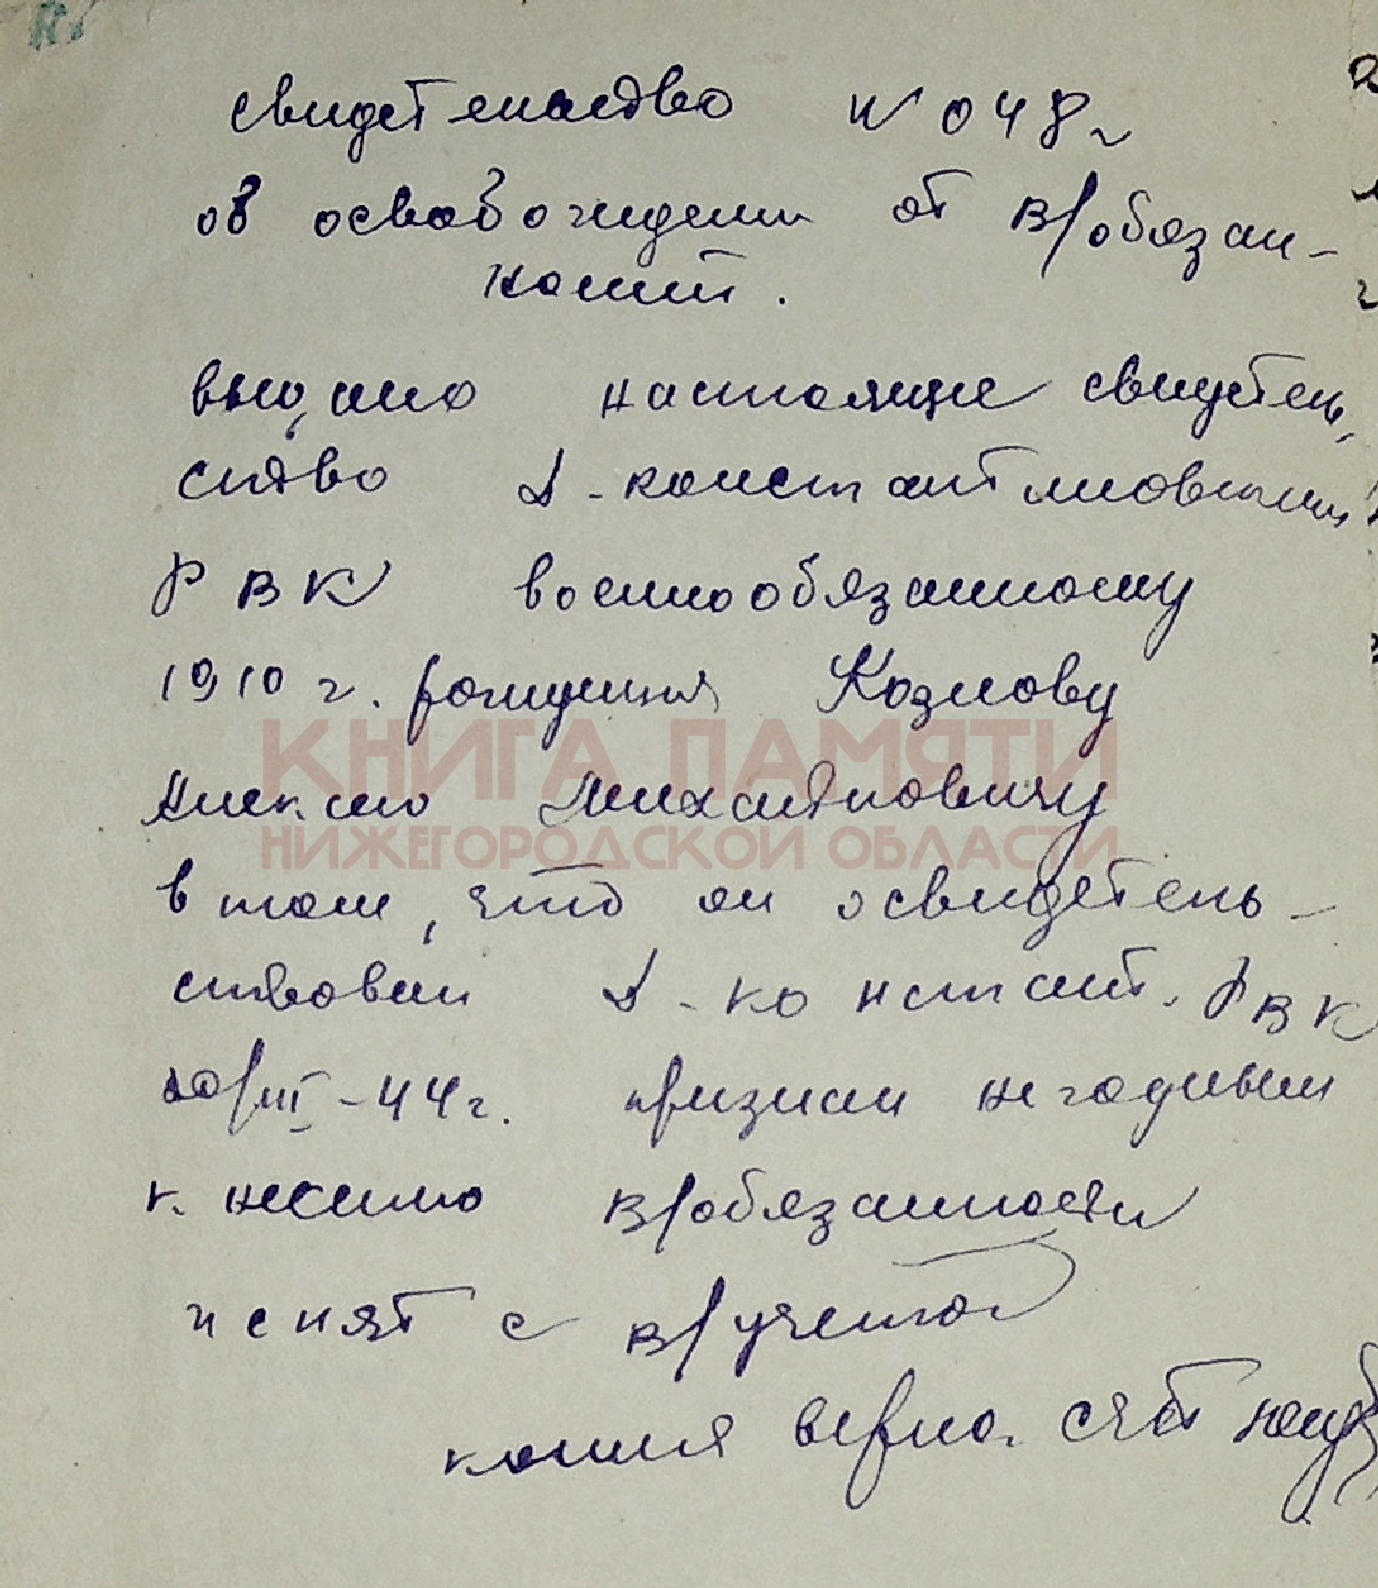 свидетельство N 048
об освобождении от в/обязан-
ности.
выдано настоящее свидетель
ство Д-Константиновским
РВК военнообязанному
1910 г. рождения Козлову
КНИГА ПАМЯТИ
Михайловичу
НИЖЕГОРОДСКОЙ ОБЛАСТИ
в том, что он освидетель-
ствован Д-Констант. РВК
/III-44г. признан негодным
к несению в/обязанности
и снят с в/учета
копия верна.